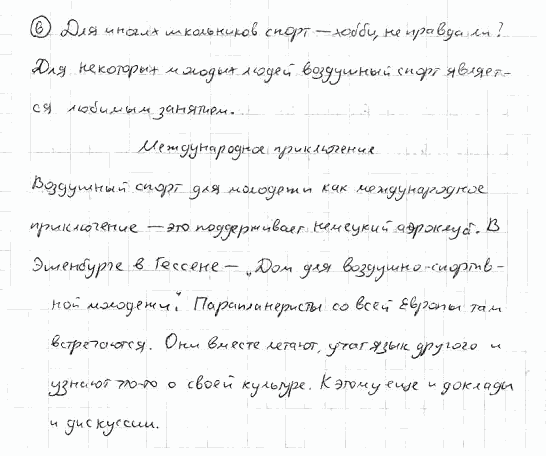 ⑥ Для иных школьников спорт – хобби, не правда ли?
Для некоторых молодых людей воздушный спорт являет-
ся любимым занятием.
Международное приключение
Воздушный спорт для молодежи как международное
приключение – это поддерживает немецкий аэроклуб. В
Эшенбурге в Гессене – „Дом для воздушно-спортив-
ной молодежи". Парапланеристы со всей Европы там
встречаются. Они вместе летают, учат язык другого и
узнают что-то о своей культуре. К этому еще и доклады
и дискуссии.